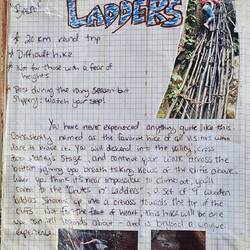 LADDERS
20 km round trip
Difficult hike
Not for those with a fear of
heights
Best during the rainy season but
slippery: watch your step!
You have never experienced anything quite like this.
Consistently named as the favorite hike of all visitors who
dare to brave it. You will descend into the valley, cross
Stage, and continue your walk across the
bottom, giving you breath taking views of the cliffs above.
When you think it's now impossible to climb out, you'll
come to the "Chutes n' Ladders", a set of 17 wooden
ladders strung up into a crevass towards the top of the
cliffs. Not for the faint of heart, this hike will be one
you can tell legends about - and is beyond a unique
experience.